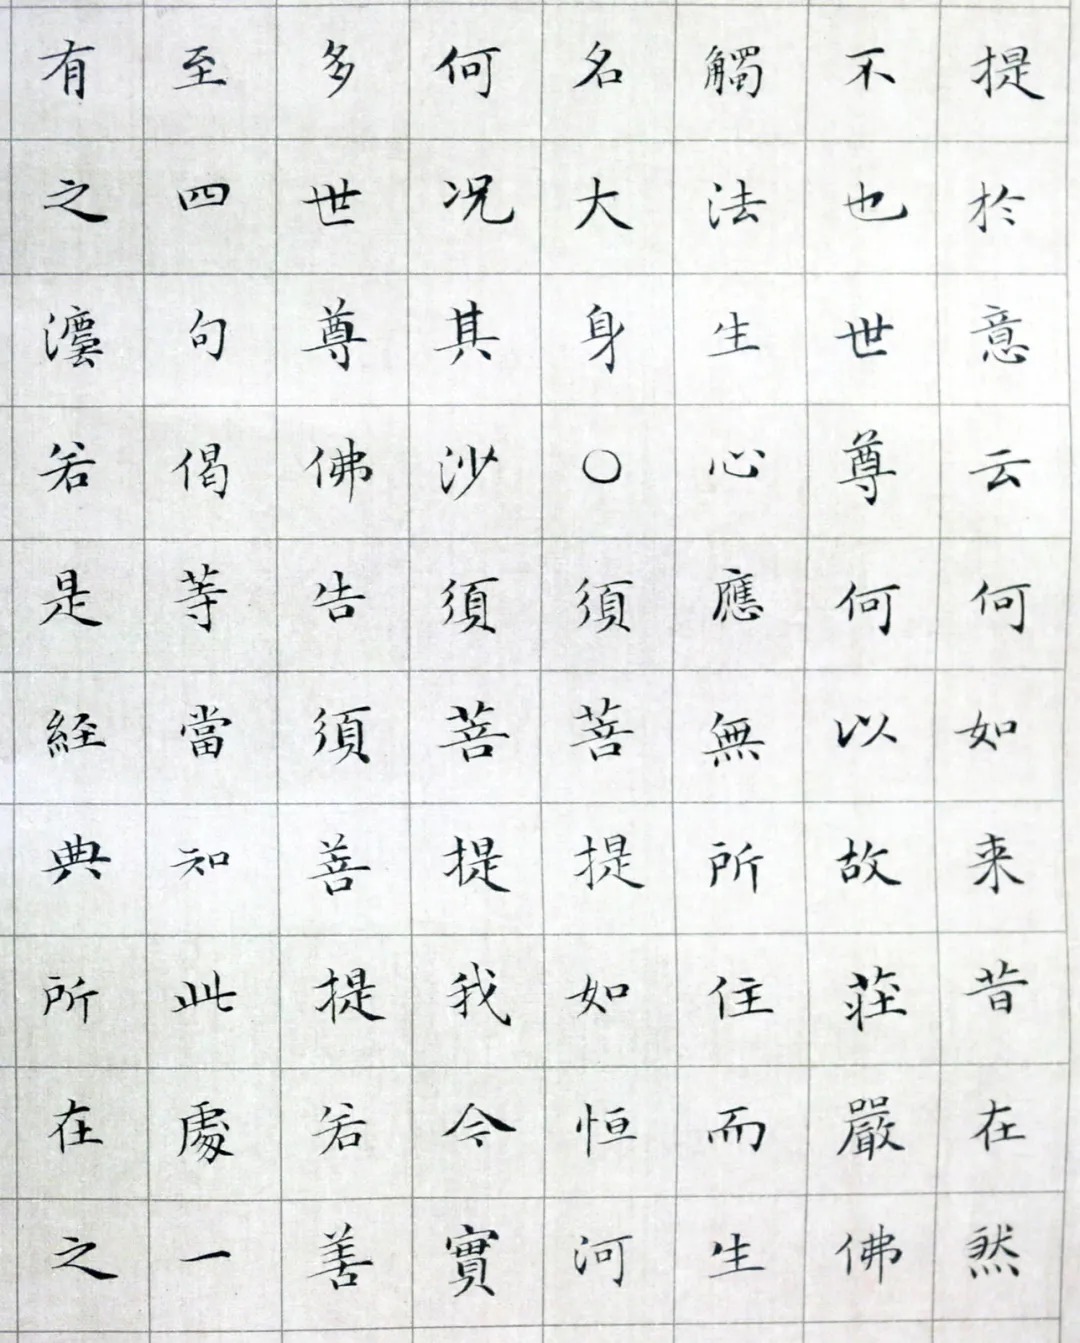 提於意云何如来昔在然
不也世尊何以故荘嚴佛
觸法生心應無所住而生
名大身〇須菩提如恒河
何况其沙須菩提我今實
多世尊佛告須菩提若善
至四句偈等當知此處一
有之若是經典所在之